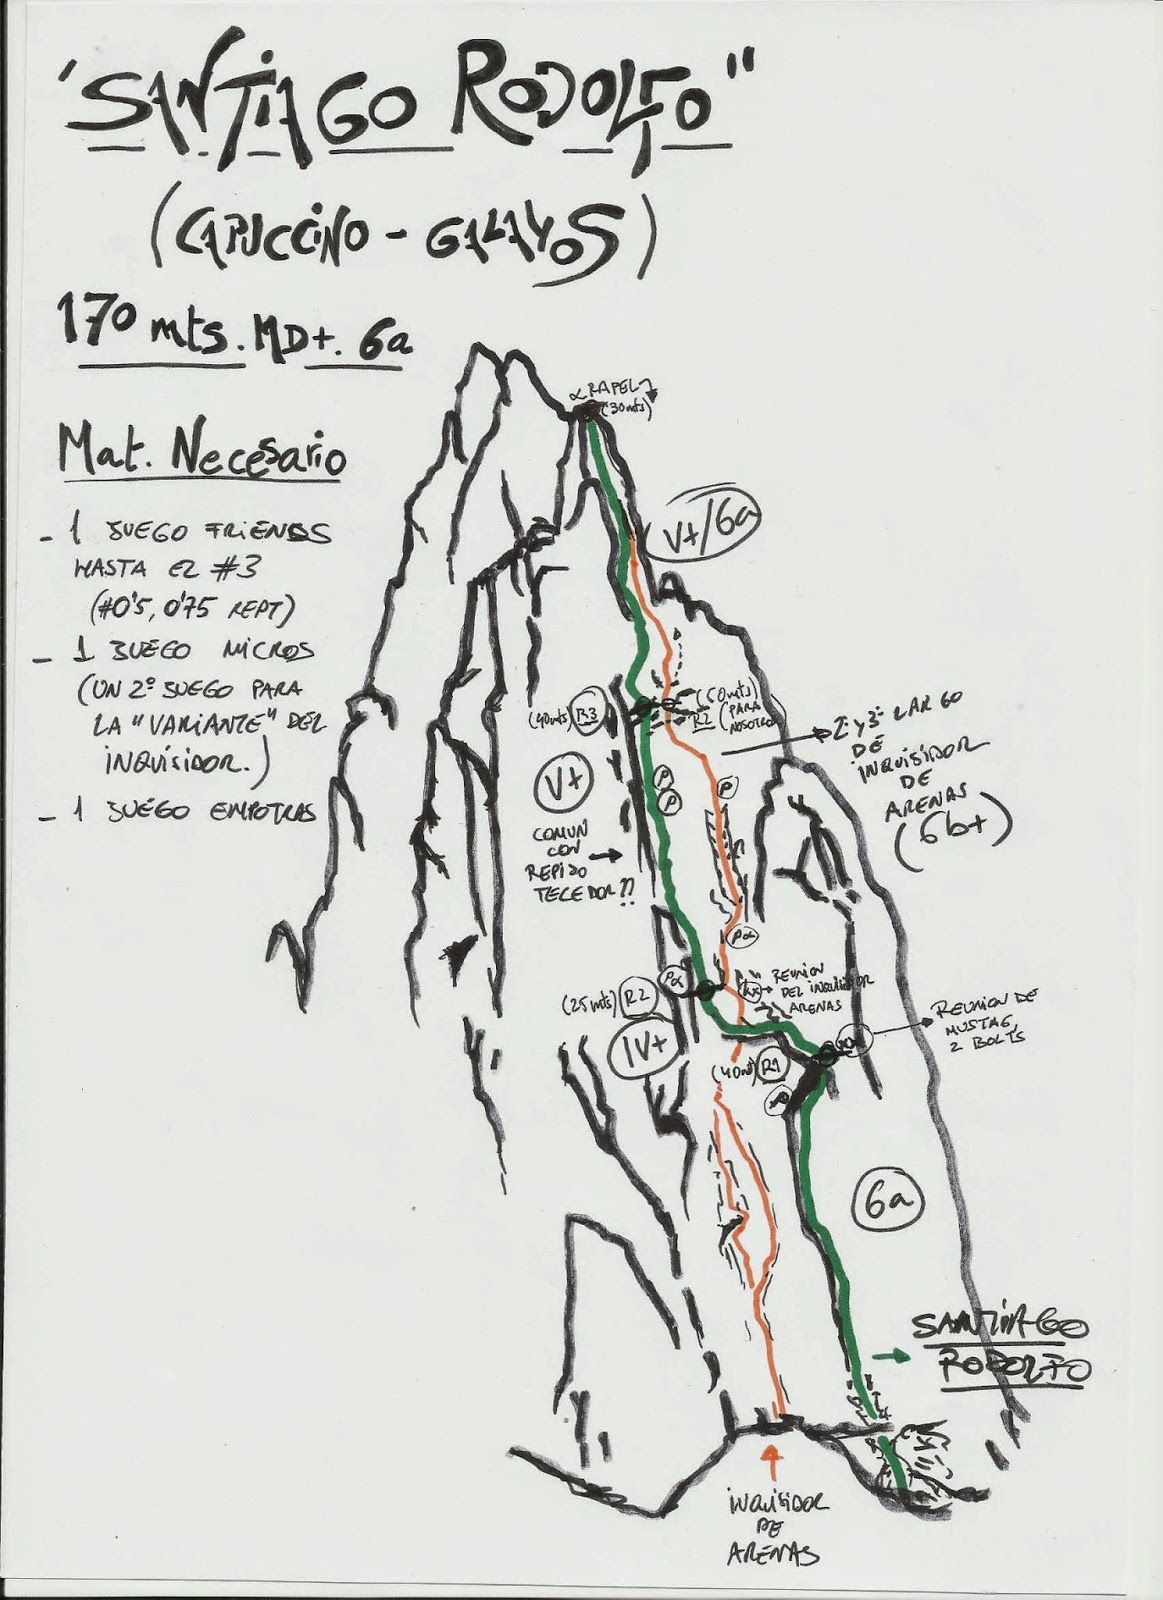 "SANTIAGO RODOLFO"
(CAPUCCINO - GALAYOS)
170 mts. MD+. 6a
Mat. Necesario
- 1 JUEGO FRIENDS
HASTA EL #3
(#0'5, 0'75 REPT)
- 1 JUEGO MICROS
(UN 2º JUEGO PARA
LA "VARIANTE" DEL
INQUISIDOR.)
- 1 JUEGO EMPOTRAS
RAPEL
(30mts)
V+/6a
(40mts) R3
(50mts)
R2 (PARA
NOSOTRO
2º y 3º LARGO
DE
INQUISIDOR
DE
ARENAS
(6b+)
V+
P
P
P
COMUN
CON
REPIDO
TECEDOR??
REUNION
DEL INQUISIDOR
ARENAS
(25mts) R2
IV+
REUNION DE
MUSTAG,
2 BOLTS
(40mt) R1
6a
SANTIAGO
RODOLFO
INQUISIDOR
DE
ARENAS